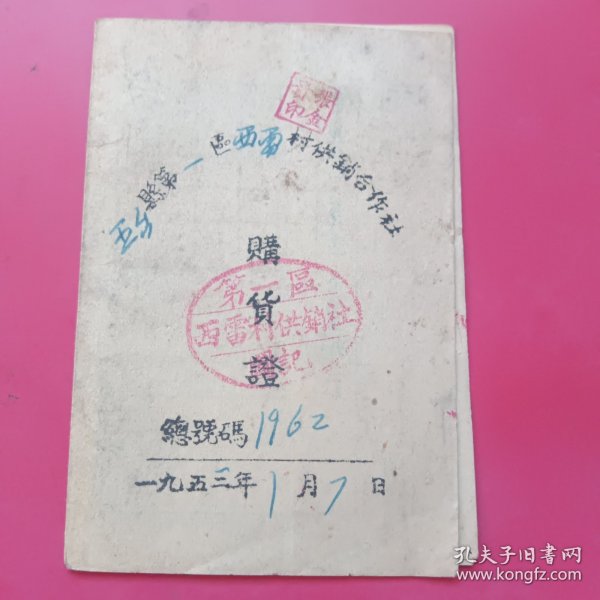 縣第一區西雷村供銷合作社
購貨證
第一區
西雷村供銷社
記
總號碼1962
一九五三年1月7日
孔夫子旧书网
www.kongfz.com